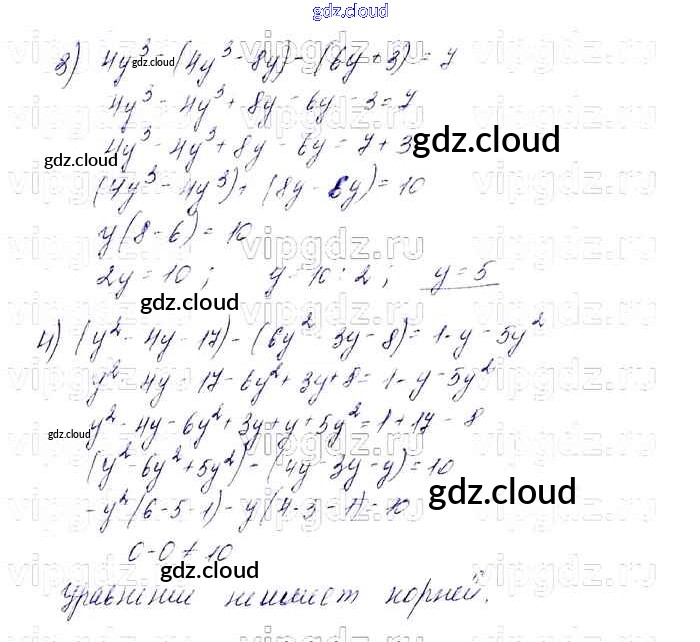 gdz.cloud
3) 4y³ - (4y³ - 8y) - (6y + 3) = 7
gdz.cloud
4y³ - 4y³ + 8y - 6y - 3 = 7
4y³ - 4y³ + 8y - 6y = 7 + 3
gdz.cloud
gdz.cloud
(4y³ - 4y³) + (8y - 6y) = 10
y(8 - 6) = 10
vipgdz.ru
2y = 10 ; y = 10 : 2 ; y = 5
gdz.cloud
4) (y² - 4y - 17) - (6y² - 3y - 8) = 1 - y - 5y²
y² - 4y - 17 - 6y² + 3y + 8 = 1 - y - 5y²
y² - 4y - 6y² + 3y + y + 5y² = 1 + 17 - 8
gdz.cloud
(y² - 6y² + 5y²) - (4y - 3y - y) = 10
gdz.cloud
-y²(6 - 5 - 1) - y(4 - 3 - 1) = 10
0 - 0 ≠ 10
gdz.cloud
Уравнение не имеет корней.